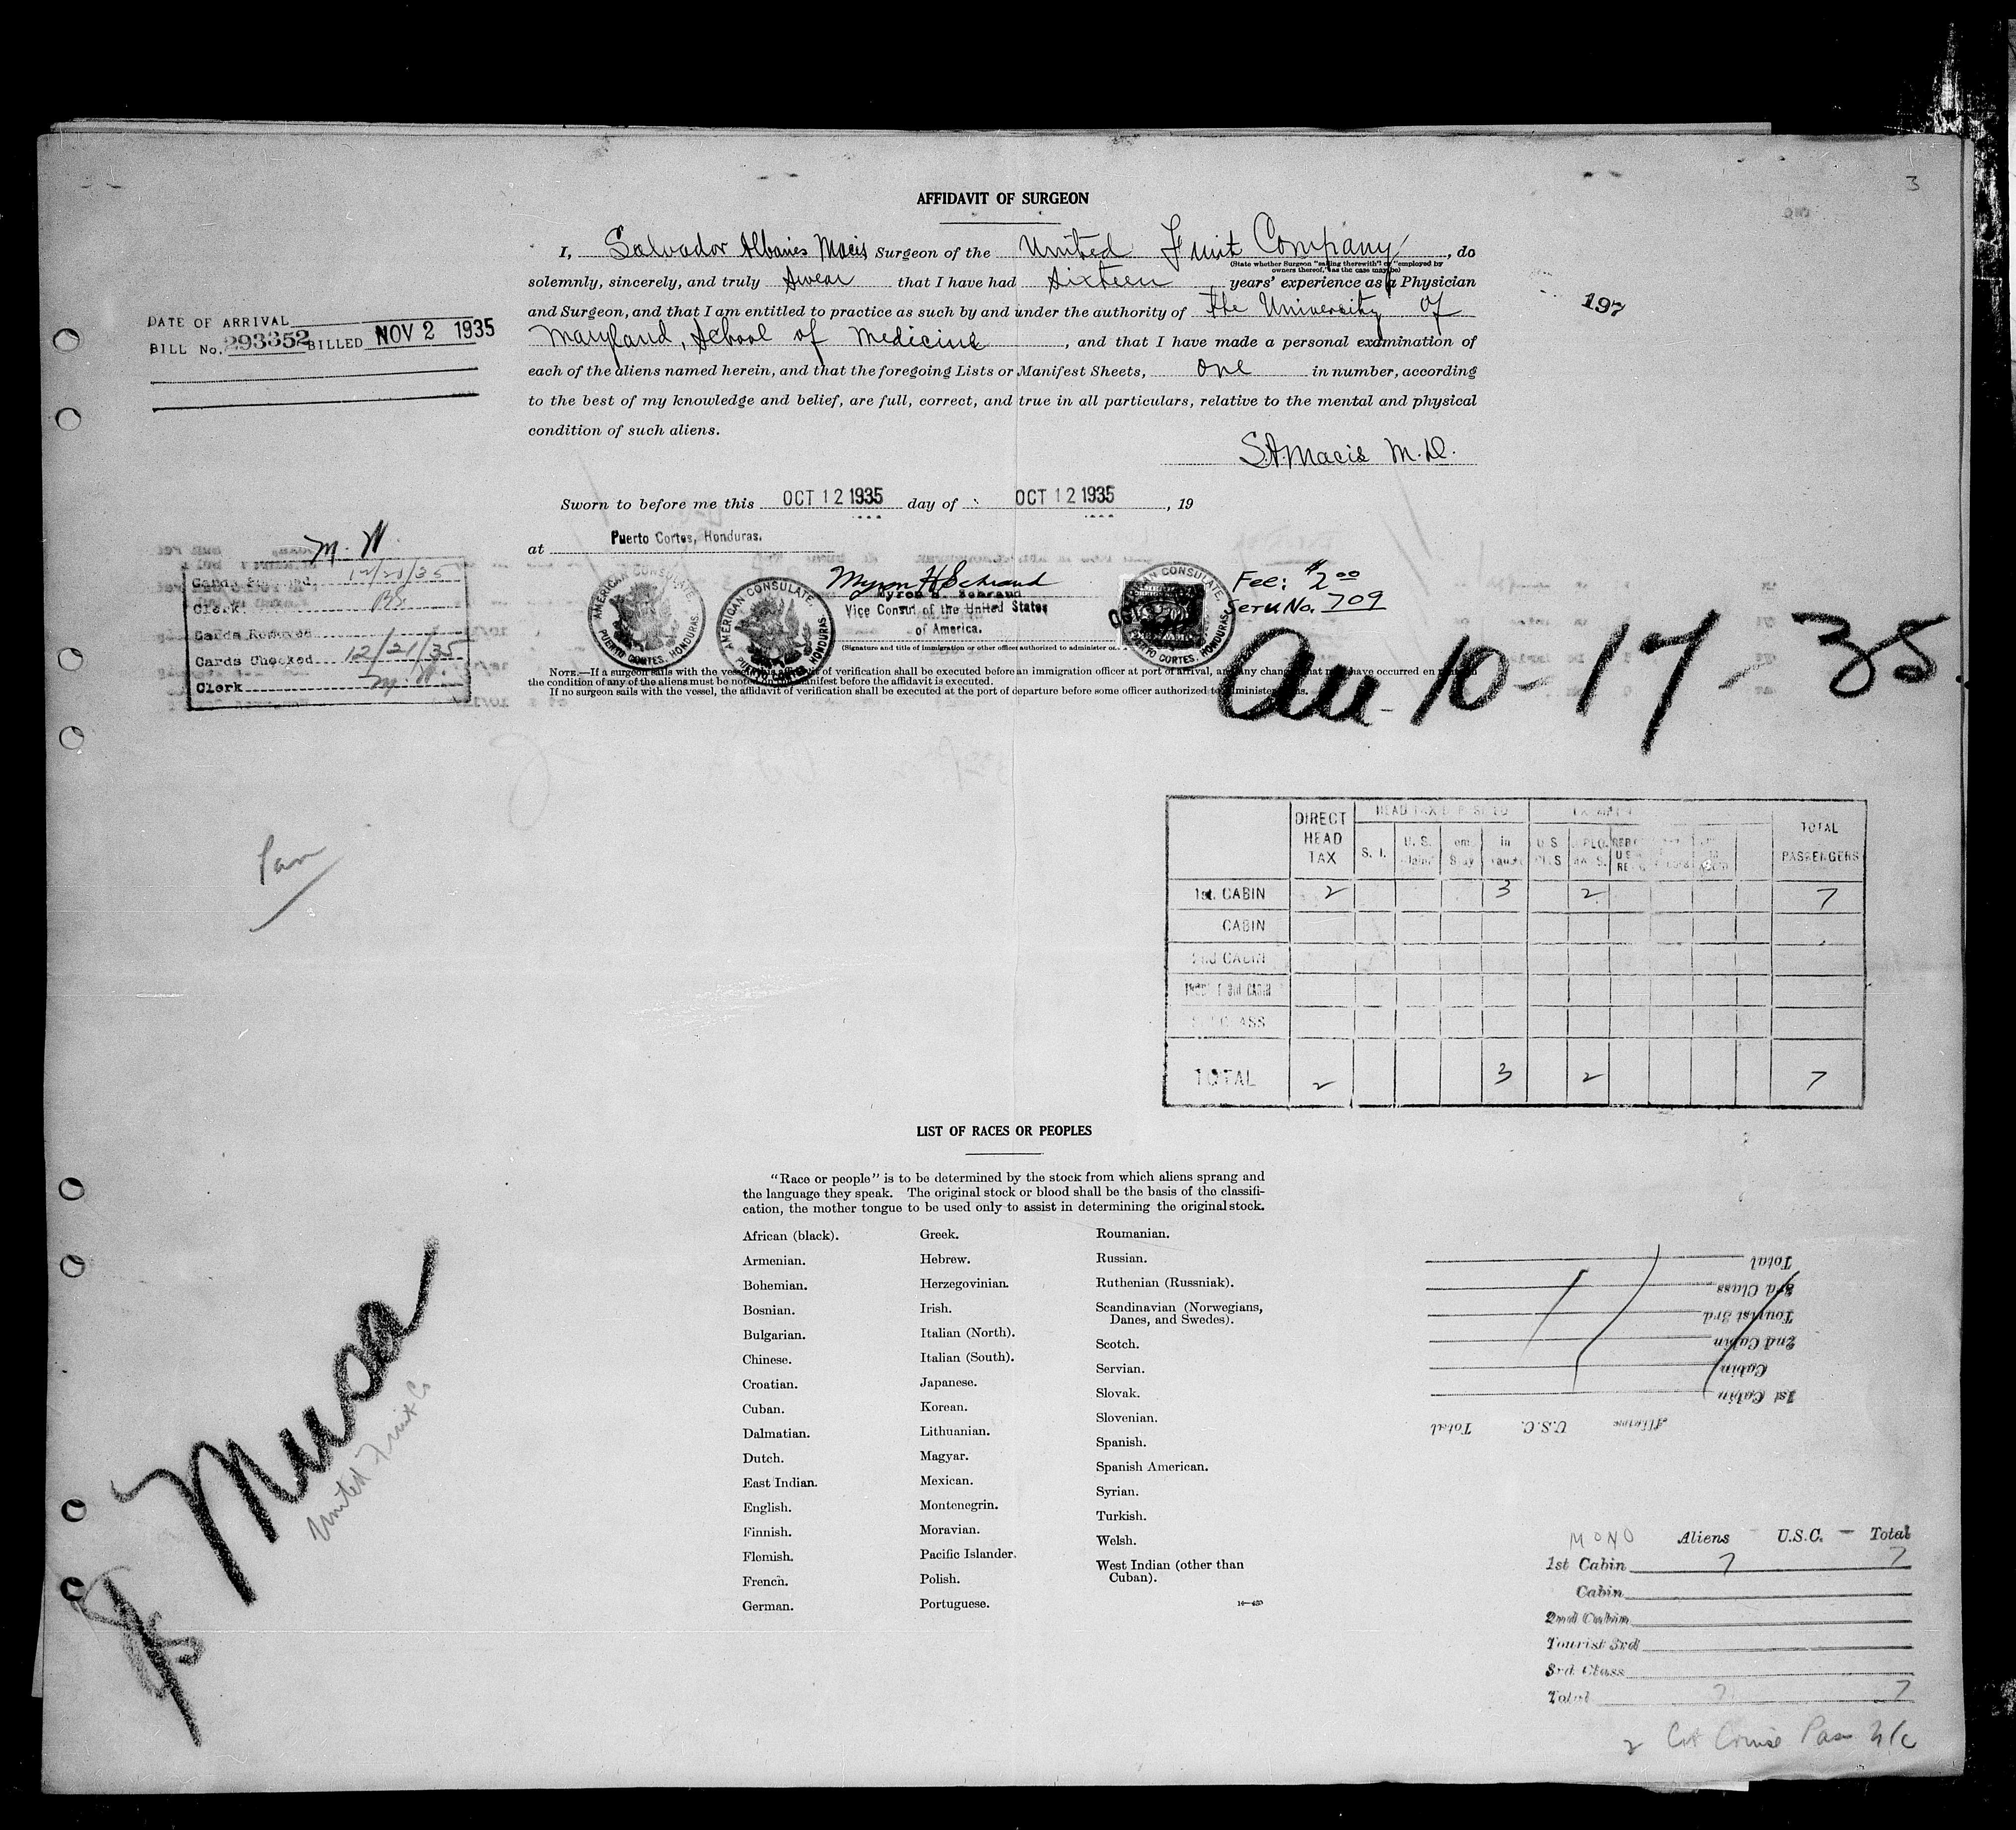 3
AFFIDAVIT OF SURGEON
I, Salvador Albanis Macis Surgeon of the United Fruit Company, do
(State whether Surgeon "sailing therewith" or "employed by
owners thereof," as the case may be)
solemnly, sincerely, and truly swear that I have had sixteen years' experience as a Physician
and Surgeon, and that I am entitled to practice as such by and under the authority of the University of
Maryland, School of Medicine, and that I have made a personal examination of
each of the aliens named herein, and that the foregoing Lists or Manifest Sheets, one in number, according
to the best of my knowledge and belief, are full, correct, and true in all particulars, relative to the mental and physical
condition of such aliens.
197
DATE OF ARRIVAL
BILL No. 293352 BILLED NOV 2 1935
S.A. Macis M.D.
Sworn to before me this OCT 12 1935 day of OCT 12 1935, 19
at Puerto Cortes, Honduras.
M. W.
12/20/35
Clerk
Cards Removed
Cards Checked 12/21/35
Clerk M. W.
AMERICAN CONSULATE. PUERTO CORTES, HONDURAS.
AMERICAN CONSULATE. PUERTO CORTES, HONDURAS.
Myron H Schraud
Myron H. Schraud
Vice Consul of the United States
of America.
(Signature and title of immigration or other officer authorized to administer
CONSULATE. PUERTO CORTES, HONDURAS.
Fee: $2.00
Serv. No. 709
NOTE.—If a surgeon sails with the vessel, of verification shall be executed before an immigration officer at port of arrival, and any changes that may have occurred en
the condition of any of the aliens must be noted on the manifest before the affidavit is executed.
If no surgeon sails with the vessel, the affidavit of verification shall be executed at the port of departure before some officer authorized to administer
10-17-35
DIRECT HEAD TAX
S. I.
U. S.
in
U S
TOTAL PASSENGERS
1st. CABIN 2 3 2 7
CABIN
2nd CABIN
TOTAL 2 3 2 7
LIST OF RACES OR PEOPLES
"Race or people" is to be determined by the stock from which aliens sprang and
the language they speak. The original stock or blood shall be the basis of the classifi-
cation, the mother tongue to be used only to assist in determining the original stock.
African (black).
Armenian.
Bohemian.
Bosnian.
Bulgarian.
Chinese.
Croatian.
Cuban.
Dalmatian.
Dutch.
East Indian.
English.
Finnish.
Flemish.
French.
German.
Greek.
Hebrew.
Herzegovinian.
Irish.
Italian (North).
Italian (South).
Japanese.
Korean.
Lithuanian.
Magyar.
Mexican.
Montenegrin.
Moravian.
Pacific Islander.
Polish.
Portuguese.
Roumanian.
Russian.
Ruthenian (Russniak).
Scandinavian (Norwegians,
Danes, and Swedes).
Scotch.
Servian.
Slovak.
Slovenian.
Spanish.
Spanish American.
Syrian.
Turkish.
Welsh.
West Indian (other than
Cuban).
Musa
United Fruit Co
Aliens U.S.C. Total
1st Cabin
Cabin
2nd Cabin
Tourist 3rd
3rd Class
Total
MONO Aliens U.S.C. — Total
1st Cabin 7 7
Cabin
2nd Cabin
Tourist 3rd
3rd Class
Total 7 7
2 Cruise Pass